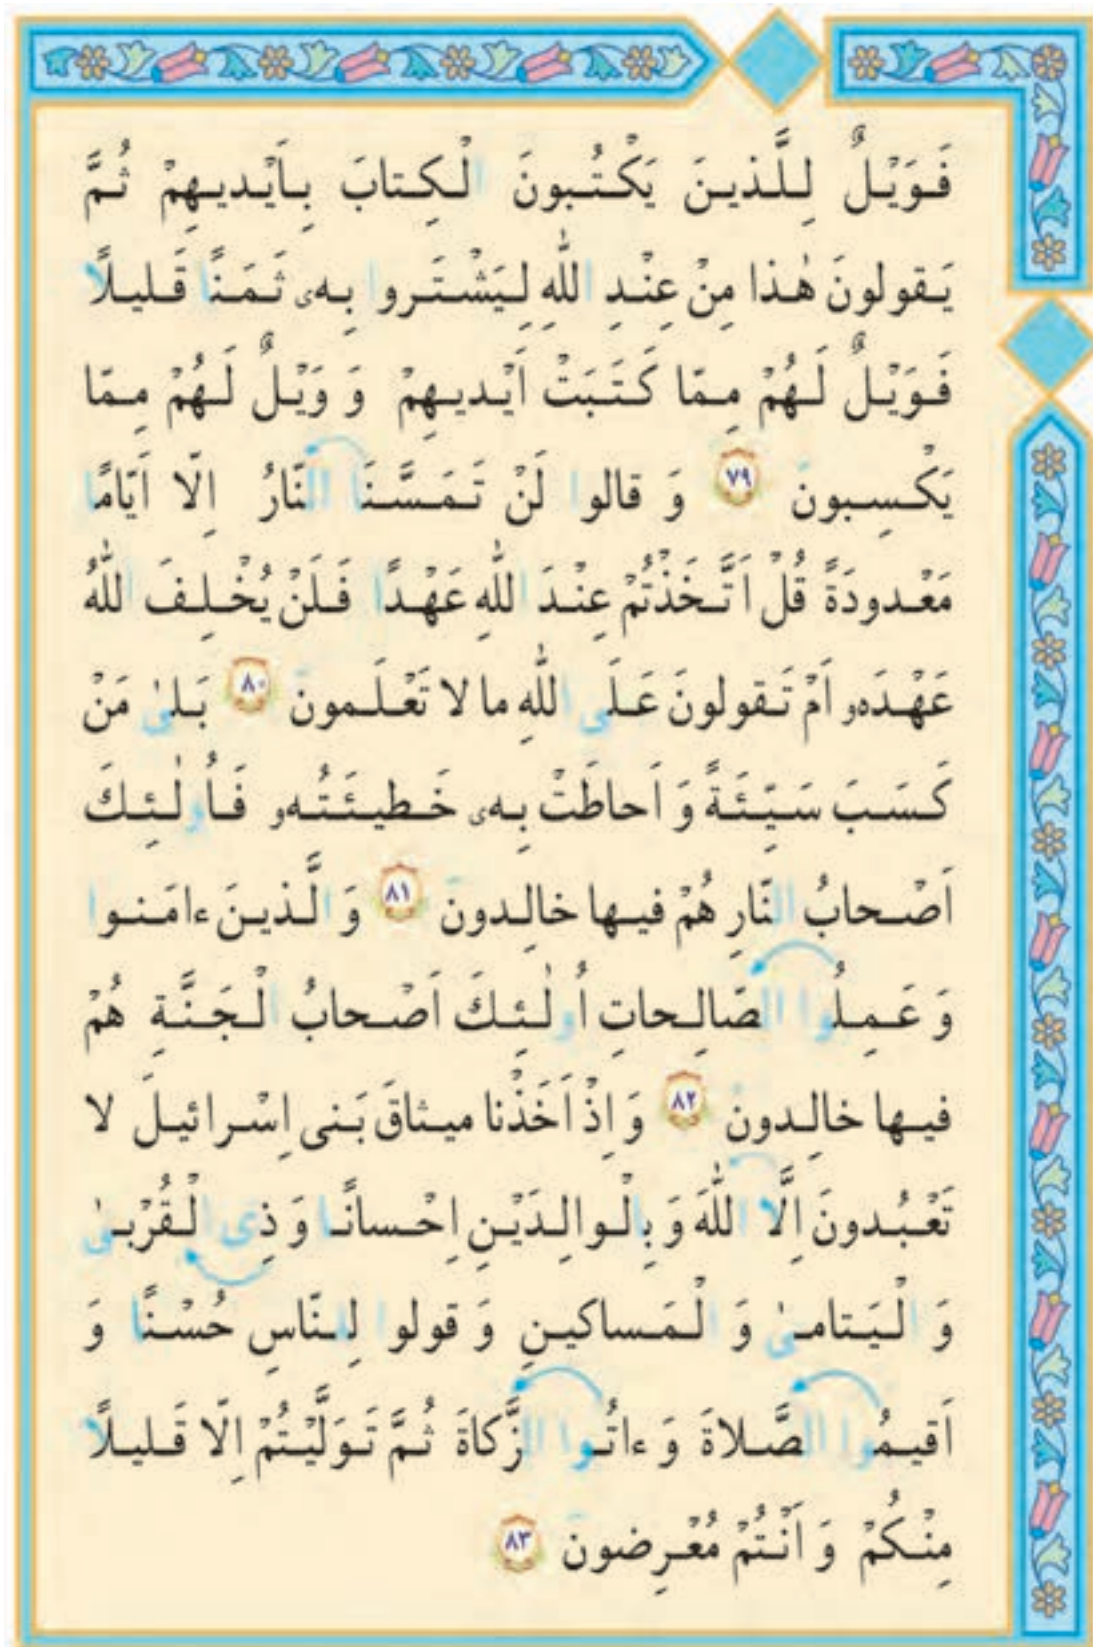 فَوَيْلٌ لِلَّذينَ يَكْتُبونَ الْكِتابَ بِاَيْديهِمْ ثُمَّ
يَقولونَ هٰذا مِنْ عِنْدِ اللّٰهِ لِيَشْتَروا بِهٖ ثَمَنًا قَليلًا
فَوَيْلٌ لَهُمْ مِمّا كَتَبَتْ اَيْديهِمْ وَ وَيْلٌ لَهُمْ مِمّا
يَكْسِبونَ ٧٩ وَ قالوا لَنْ تَمَسَّنَا النّارُ اِلّا اَيّامًا
مَعْدودَةً قُلْ اَتَّخَذْتُمْ عِنْدَ اللّٰهِ عَهْدًا فَلَنْ يُخْلِفَ اللّٰهُ
عَهْدَهۥ اَمْ تَقولونَ عَلَى اللّٰهِ ما لا تَعْلَمونَ ٨٠ بَلىٰ مَنْ
كَسَبَ سَيِّئَةً وَ اَحاطَتْ بِهٖ خَطيئَتُهۥ فَاُولٰئِكَ
اَصْحابُ النّارِ هُمْ فيها خالِدونَ ٨١ وَ الَّذينَ ءامَنوا
وَ عَمِلُوا الصّالِحاتِ اُولٰئِكَ اَصْحابُ الْجَنَّةِ هُمْ
فيها خالِدونَ ٨٢ وَ اِذْ اَخَذْنا ميثاقَ بَنى اِسْرائيلَ لا
تَعْبُدونَ اِلَّا اللّٰهَ وَ بِالْوالِدَيْنِ اِحْسانًا وَ ذِى الْقُرْبىٰ
وَ الْيَتامىٰ وَ الْمَساكينِ وَ قولوا لِلنّاسِ حُسْنًا وَ
اَقيمُوا الصَّلاةَ وَ ءاتُوا الزَّكاةَ ثُمَّ تَوَلَّيْتُمْ اِلّا قَليلًا
مِنْكُمْ وَ اَنْتُمْ مُعْرِضونَ ٨٣